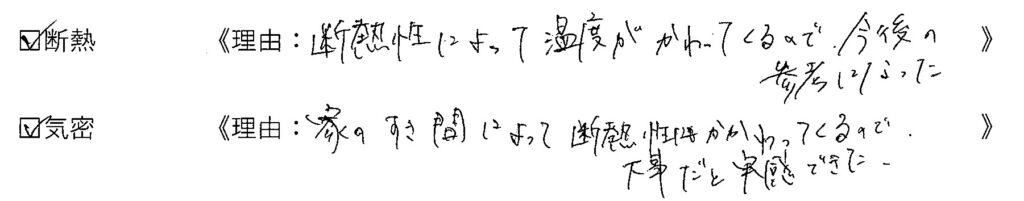 ☑断熱 《理由：断熱性によって温度がかわってくるので、今後の 》
参考になった
☑気密 《理由：家のすき間によって断熱性はかかわってくるので、 》
大事だと実感できた。